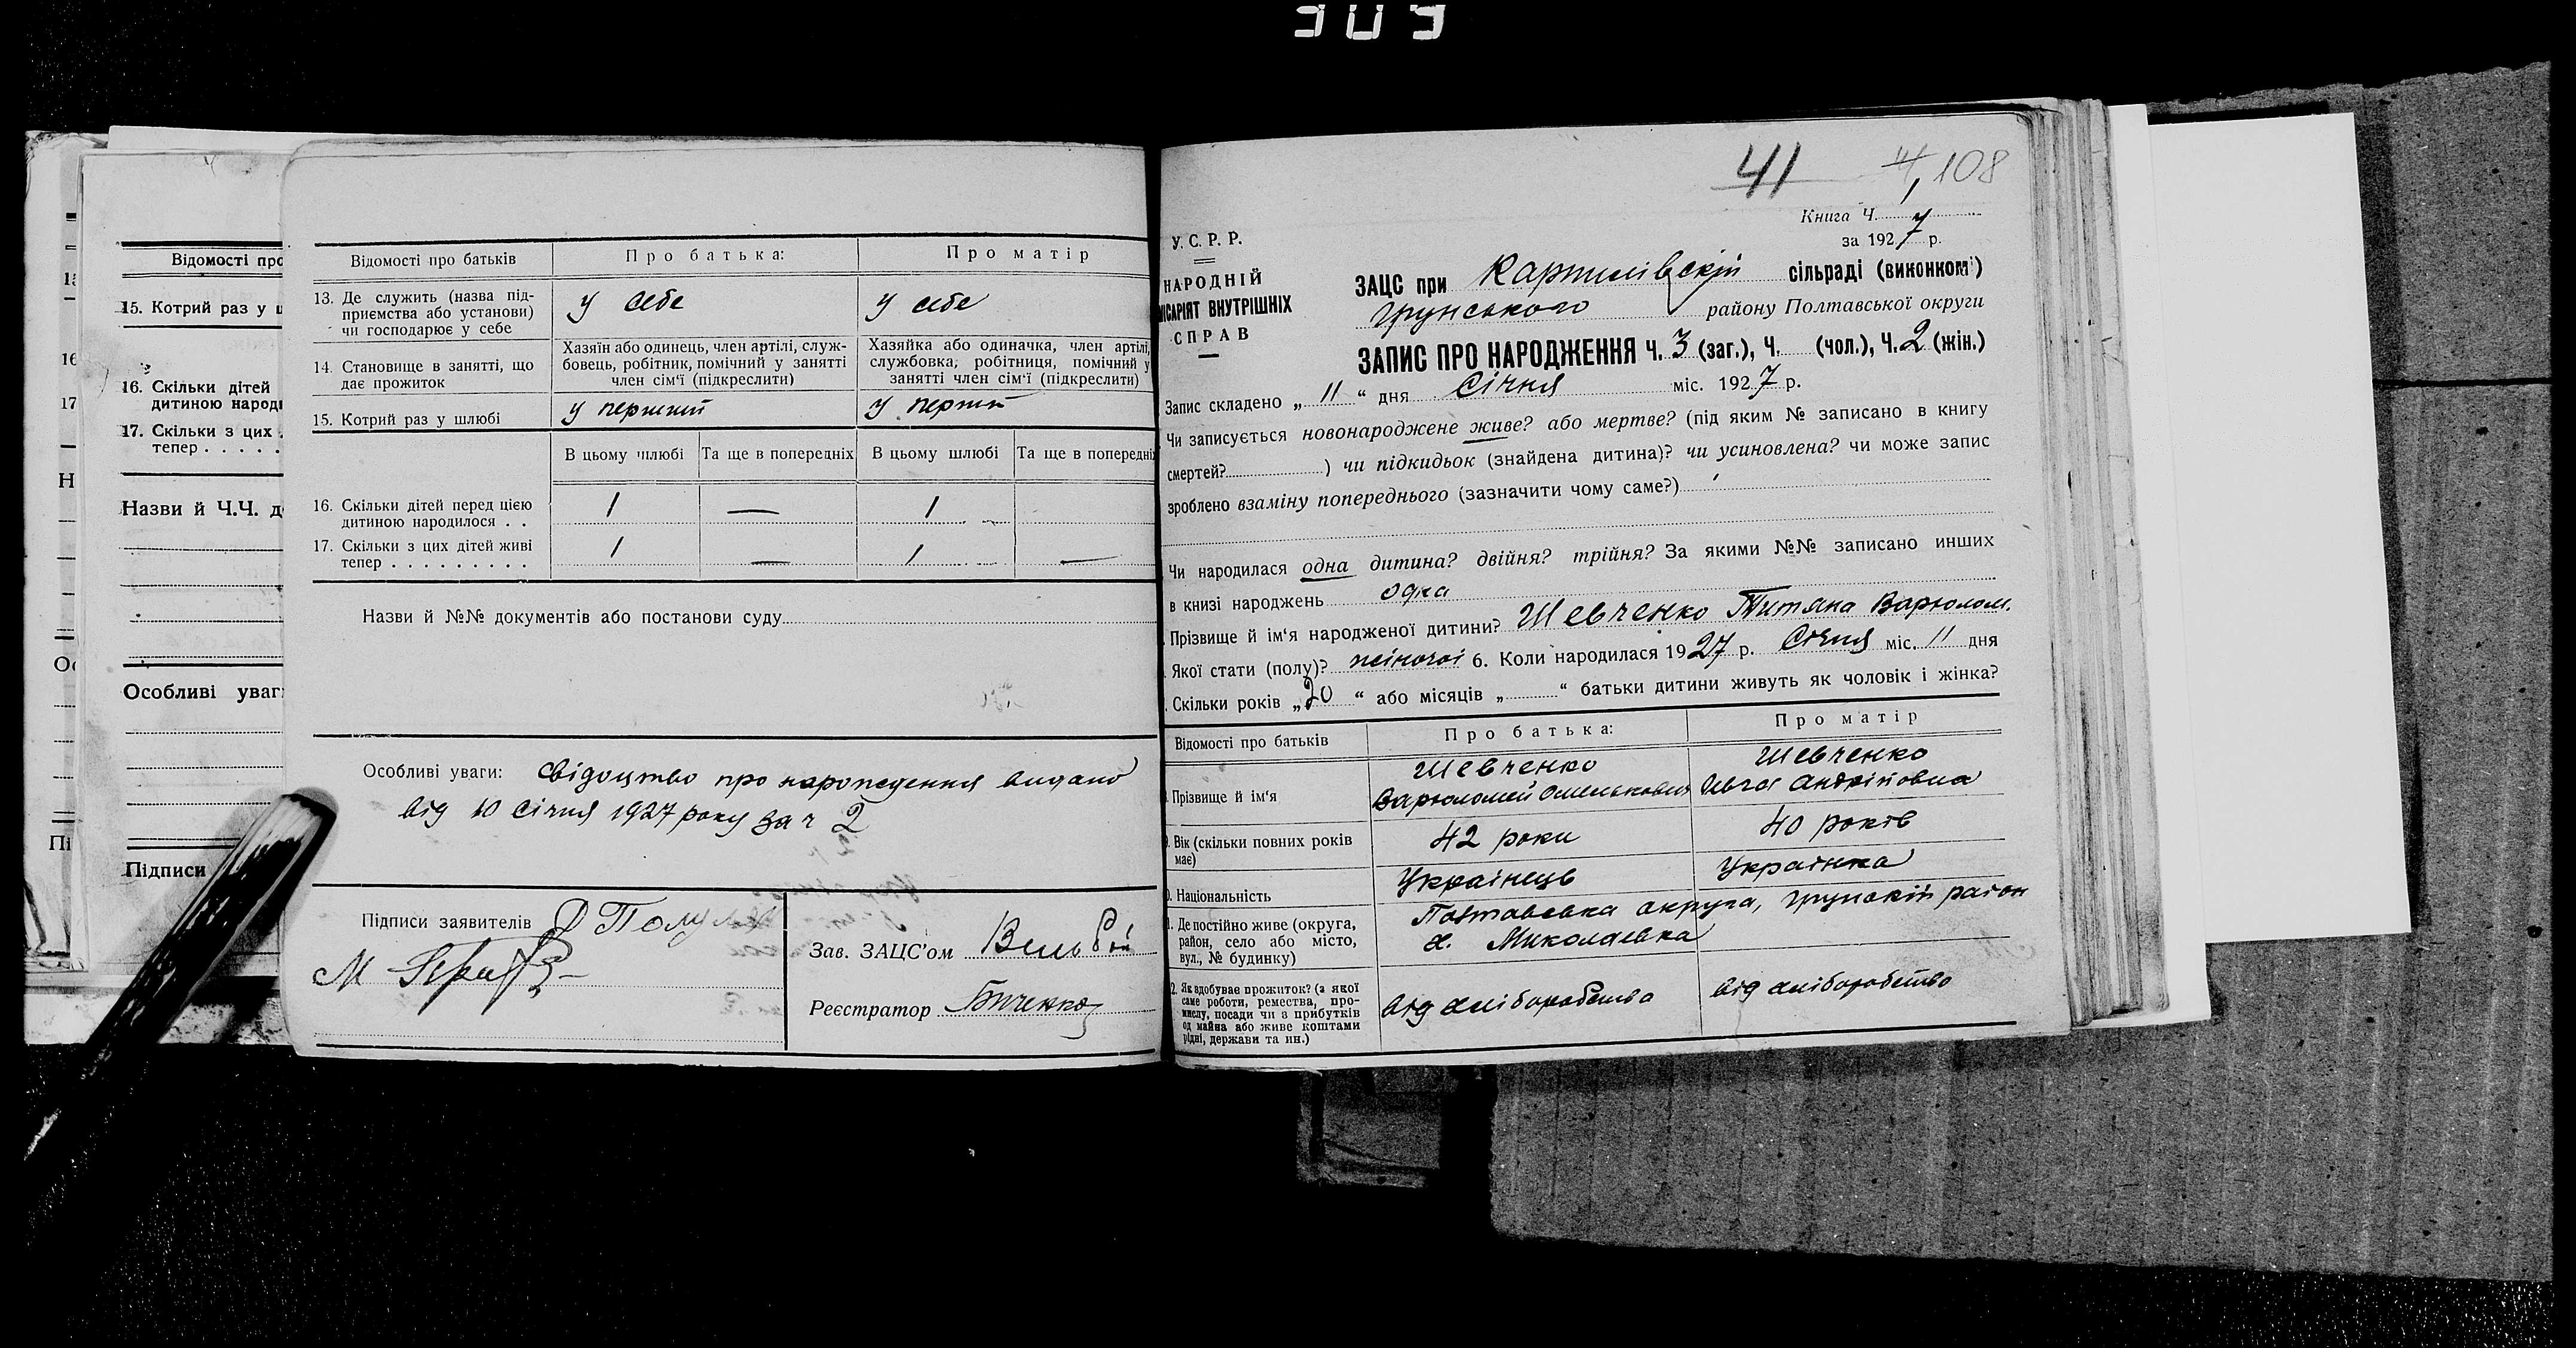 303
Відомості про
15. Котрий раз у ш
16. Скільки дітей
дитиною народи
17. Скільки з цих
тепер . . . . .
Назви й Ч.Ч. д
Особливі уваг
Підписи
16
17
Н
Ос
Пі
Відомості про батьків
Про батька:
Про матір
13. Де служить (назва під-
приємства або установи)
чи господарює у себе
у себе
у себе
14. Становище в занятті, що
дає прожиток
Хазяїн або одинець, член артілі, служ-
бовець, робітник, помічний у занятті
член сім'ї (підкреслити)
Хазяйка або одиначка, член артілі,
службовка, робітниця, помічний у
занятті член сім'ї (підкреслити)
15. Котрий раз у шлюбі
у перший
у перший
В цьому шлюбі
Та ще в попередніх
В цьому шлюбі
Та ще в попередні
16. Скільки дітей перед цією
дитиною народилося . .
1 — 1
17. Скільки з цих дітей живі
тепер . . . . . . . . .
1 — 1 —
Назви й №№ документів або постанови суду
Особливі уваги: Свідоцтво про народження видано
від 10 Січня 1927 року за ч 2
Підписи заявителів
Зав. ЗАЦС'ом
Реєстратор
41
108
Книга Ч.
за 1927 р.
У. С. Р. Р.
НАРОДНІЙ
ІСАРІЯТ ВНУТРІШНІХ
СПРАВ
ЗАЦС при сільраді (виконком)
Грунського району Полтавської округи
ЗАПИС ПРО НАРОДЖЕННЯ Ч. 3 (заг.), Ч. (чол.), Ч. 2 (жін.)
Запис складено „ 11 “ дня Січня міс. 1927 р.
Чи записується новонароджене живе? або мертве? (під яким № записано в книгу
смертей? ) чи підкидьок (знайдена дитина)? чи усиновлена? чи може запис
зроблено взаміну попереднього (зазначити чому саме?)
Чи народилася одна дитина? двійня? трійня? За якими №№ записано инших
в книзі народжень одна
Прізвище й ім'я народженої дитини? Шевченко Титяна Варюлом.
Якої стати (полу)? жіночої 6. Коли народилася 1927 р. Січня міс. 11 дня
Скільки років „ 20 “ або місяців „ “ батьки дитини живуть як чоловік і жінка?
Відомості про батьків
Про батька:
Про матір
Прізвище й ім'я
Шевченко
Варюломей Омелькович
Шевченко
Ивга Андрійовна
Вік (скільки повних років
має)
42 роки
40 років
Національність
Українець
Українка
Де постійно живе (округа,
район, село або місто,
вул., № будинку)
Полтавська округа, Грунській район
х. Миколаівка
2. Як здобуває прожиток? (з якої
саме роботи, ремества, про-
мислу, посади чи з прибутків
од майна або живе коштами
рідні, держави та ин.)
від хліборобства
від хліборобства